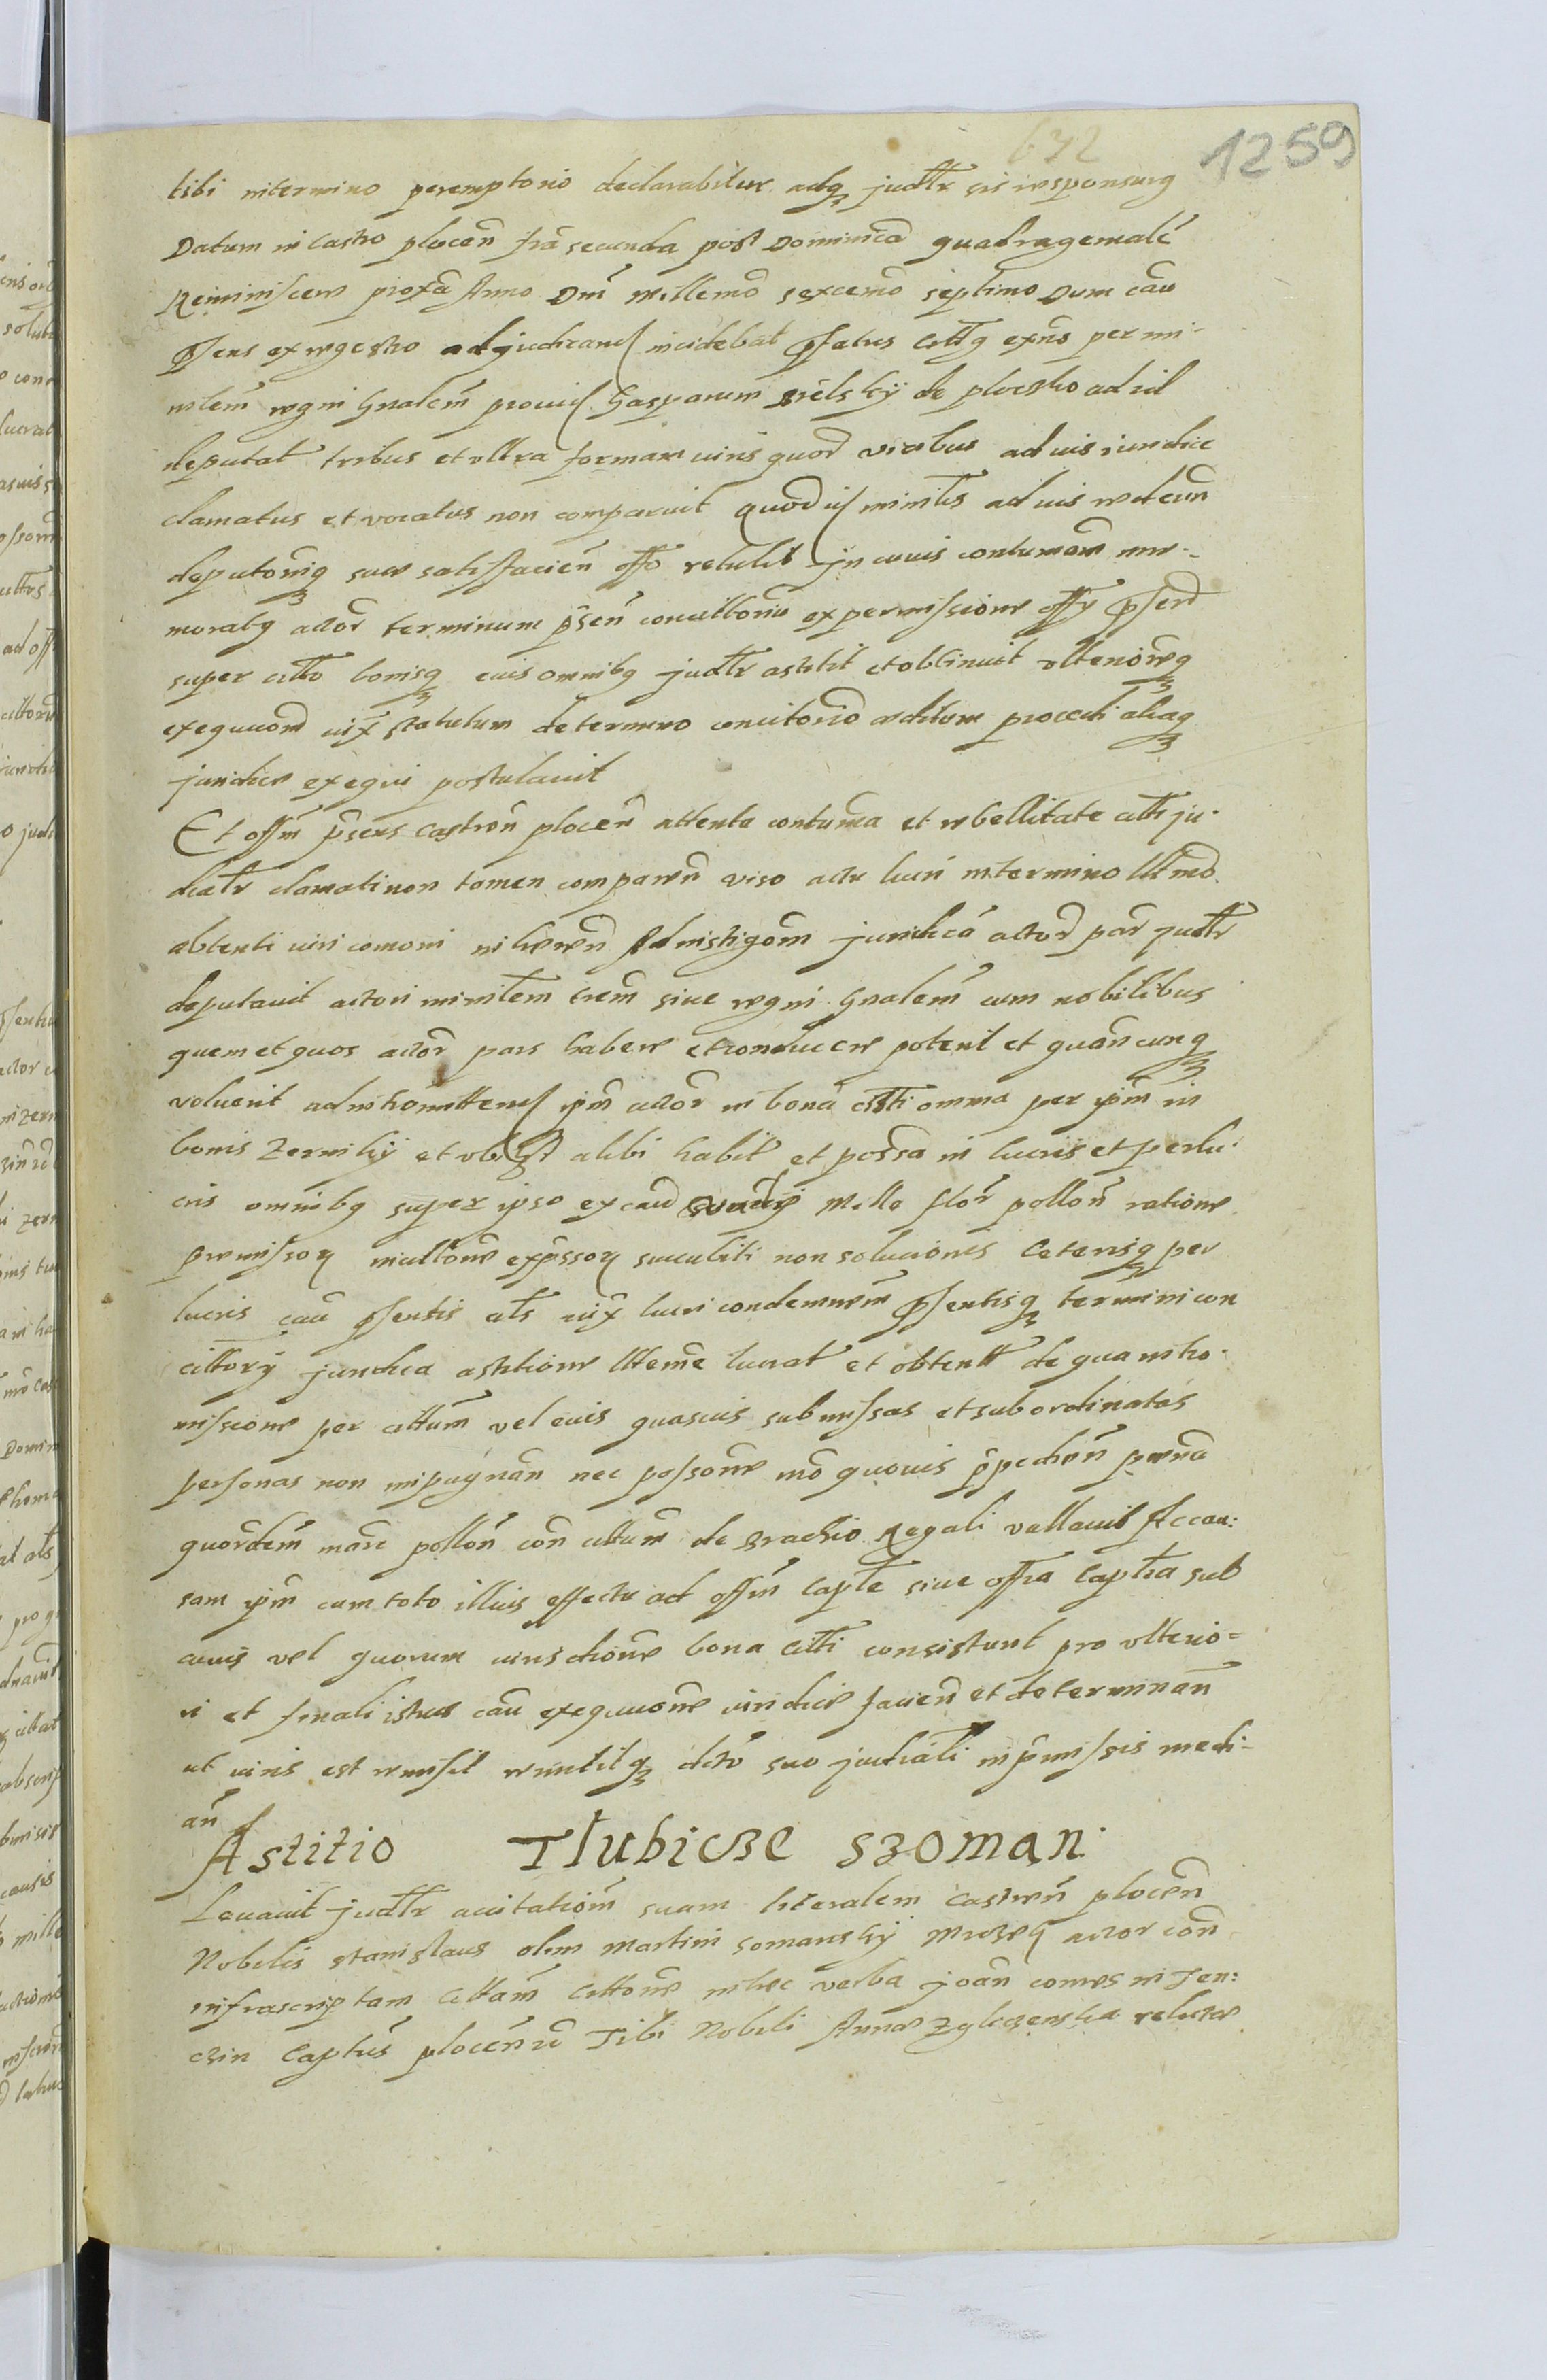 632
1259
tibi in termino peremptorio declarabitur adq judtr sis responsurg
Datum in Castro plocen fra secunda post Dominica quadragemale
Reminiscere proxa Anno Dni Millemo sexcemo septimo Dum cau
psens ex regestro adjudicand incidebat pfatus cittg exns per mi-
nrlem regni gnalem provid Gasparum Bielsky de plocsko ad id
deputat tribus et ultra formam iuris quor vicibus ad ius iuridice
clamatus et vocatus non comparuit quod is minrlis ad ius redeun
deputonig sue satisfacien offo retulit In cuius contumam me-
moratg actor terminum psen concittoriu ex permissione offy psen
super citto bonisq eius omnibg judtr astitit et obtinuit ulterioreq
exequuom iux statutum de termino concitorio editum procedi aliaq
juridice exequi postulavit
Et offm psens Castren plocen attenta contuma et rebellitate citti ju-
dialr clamati non tamen comparen viso actu lucri in termino ultimo
obtenti iuri comoni inheren Ad instigaom juridica actor par judtr
deputavit actori minrlem trem sive regni gnalem cum nobilibus
quem et quos actor pars habere et conducere poterit et quancunq
voluerit ad intromittend ipm actor in bona citti omnia per ipm in
bonis Zernsky et ubi st alibi habit et possa in lucris et perlu-
cris omnibg super ipso ex cau Mille flor pollon ratione
premissor incittone expssor succubiti non solucionis Ceterisq per
lucris cau psentis als iux lucri condemnem psentisq termini con
cittory juridica astitione lteme lucrat et obtentt de qua intro-
missione per cittum vel eius quasvis submissas et subordinatas
personas non impugnan nec possone mo quovis ppedien pena
quordem marc pollon con cittum de Brachio Regali vallavit Ac cau:
sam ipm cum toto illius effectu ad offm Capte sive offia Captia sub
cuius vel quorum iurisdione bona Citti consistunt pro ulterio=
ri et finali istius cau exequuone iuridice facien et determinan
ut iuris est remisit remittitq dcto suo judiciali in pmissis medi-
an
Astitio Tlubicze szoman.
Levavit judtr accitationm suam literalem Castren plocen
Nobilis Stanislaus olim Martini Somansky Mrozek actor con
infrascriptam Cittam Cittone in hec verba Joan comes in Ten:
czin Captus plocen Tibi Nobili Anne Zglczenska relicte